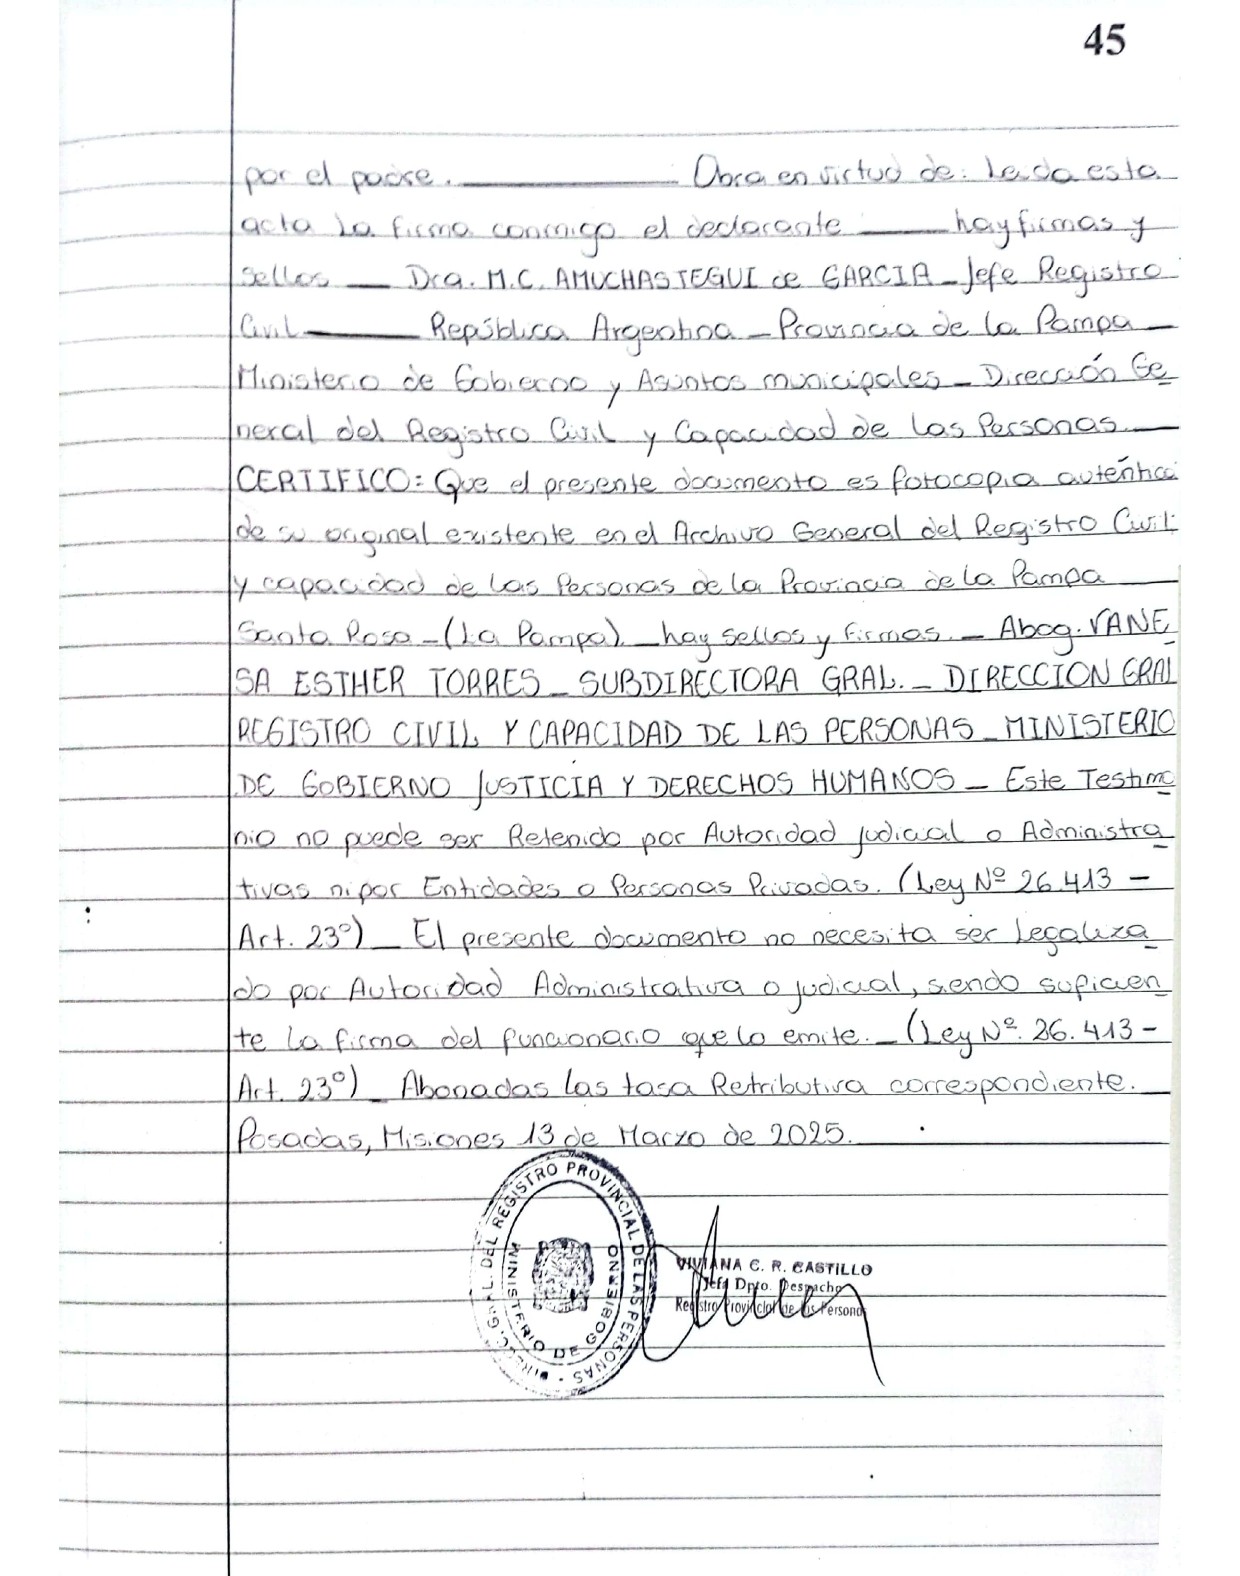 45
por el padre. Obra en virtud de: Leida esta
acta la firma conmigo el declarante hay firmas y
sellos Dra. M.C. AMUCHASTEGUI de GARCIA - Jefe Registro
Civil República Argentina - Provincia de La Pampa -
Ministerio de Gobierno y Asuntos municipales - Dirección Ge
neral del Registro Civil y Capacidad de las Personas
CERTIFICO: Que el presente documento es fotocopia auténtica
de su original existente en el Archivo General del Registro Civil
y capacidad de las Personas de la Provincia de La Pampa
Santa Rosa - (La Pampa). hay sellos y firmas. - Abog. VANE
SA ESTHER TORRES - SUBDIRECTORA GRAL. - DIRECCION GRAL
REGISTRO CIVIL Y CAPACIDAD DE LAS PERSONAS - MINISTERIO
DE GOBIERNO JUSTICIA Y DERECHOS HUMANOS - Este Testimo
nio no puede ser Retenido por Autoridad judicial o Administra
tivas ni por Entidades o Personas Privadas. (Ley Nº 26.413 -
Art. 23º) - El presente documento no necesita ser Legaliza
do por Autoridad Administrativa o judicial, siendo suficien
te la firma del funcionario que lo emite. - (Ley Nº. 26.413 -
Art. 23º) - Abonadas las tasa Retributiva correspondiente.
Posadas, Misiones 13 de Marzo de 2025.
DIREC. GRAL. DEL REGISTRO PROVINCIAL DE LAS PERSONAS
MINISTERIO DE GOBIERNO
VIVIANA C. R. CASTILLO
Jefa Dpto. Despacho
Registro Provincial de las Personas